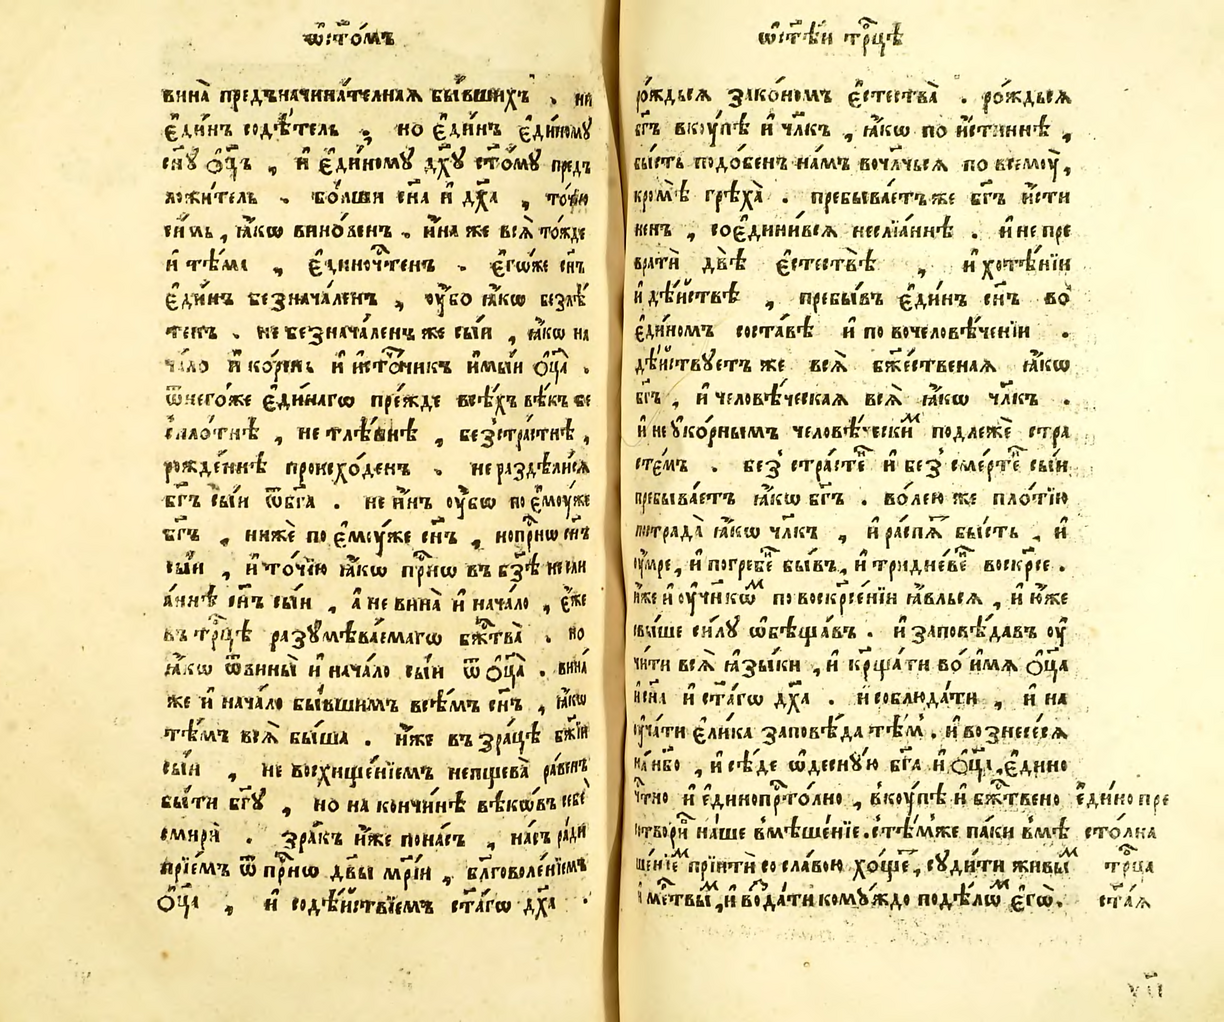 ѡ҆ст҃ѡмъ
вина̀ предъначина́телнаѧ бы́вшихъ . ни
є҆ди́нъ содѣ́тель , но є҆ди́нъ є҆ди́ному
сн҃у ѻ҆ц҃ъ , и҆ є҆ди́ному дх҃у ст҃о́му предъ
ложи́тель . бо́лши сн҃а и҆ дх҃а , то́чїю
си́мъ , ꙗ҆́кѡ вино́венъ . и҆́на же всѧ̀ то́жде
и҆ тѣ́мі , є҆диноч҇тенъ . є҆гѡ́же сн҃ъ
є҆ди́нъ безнача́ленъ , ᲂу҆́бо ꙗ҆́кѡ безлѣ́
тенъ . не безнача́ленъ же сы́и , ꙗ҆́кѡ на
ча́ло и҆ ко́рень и҆ и҆сто́чникъ и҆мы́и ѻ҆ц҃а̀ .
ѿнего́же є҆ди́нагѡ пре́жде всѣ́хъ вѣ́къ бе
спло́тнѣ , нетлѣ́ннѣ , без̾стра́стнѣ ,
рожде́ннѣ происхо́денъ . нераздѣли́сѧ
бг҃ъ сы́и ѿбг҃а . не и҆́нъ ᲂу҆́бѡ по є҆мꙋ́же
бг҃ъ , нижѐ по є҆мꙋ́же сн҃ъ , нопр҇нѡ сн҃ъ
сы́и , и҆ то́чїю ꙗ҆́кѡ пр҇нѡ въ бз҃ѣ несли
ѧ́ннѣ сн҃ъ сы́и , а҆ не вина̀ и҆ нача́ло , є҆́же
въ тр҇цѣ разꙋмѣва́емагѡ бж҇тва̀ . но
ꙗ҆́кѡ ѿвины̀ и҆ нача́ло сы́и ѿ ѻ҆ц҃а̀ . вина́
же и҆ нача́ло бы́вшимъ всѣ́мъ сн҃ъ , ꙗ҆́кѡ
тѣ́мъ всѧ̀ бы́ша . и҆́же въ зра́цѣ бж҃їи
сы́и , не восхище́нїемъ непщева̀ ра́венъ
бы́ти бг҃ꙋ , но на кончи́нѣ вѣкѡ́въ себѐ
смирѝ . зра́къ и҆́же пона́съ , на́съ ра́ди
прїе́мъ ѿ пр҇нѡ дв҃ы мр҃їи , бл҃говоле́нїемъ
ѻ҆ц҃а̀ , и҆ содѣ́йствїемъ ст҃а́гѡ дх҃а .
ѡ҆ст҃ѣ́и тр҇цѣ
ро́ждьсѧ зако́номъ є҆стества̀ . ро́ждьсѧ
бг҃ъ вкꙋ́пѣ и҆ чл҃къ , ꙗ҆́кѡ по и҆́стиннѣ ,
бы́сть подо́бенъ на́мъ вочл҃чьсѧ по всемꙋ̀ ,
кро́мѣ грѣха̀ . пребыва́етъ же бг҃ъ и҆́сти
ненъ , соедини́всѧ несліѧ́ннѣ . и҆ не пре
врати̂ двѣ̀ є҆стествѣ̀ , и҆ хотѣ́нїи
и҆ дѣ́йствѣ , пребы́въ є҆ди́нъ сн҃ъ во̀
є҆ди́номъ соста́вѣ и҆ по вочеловѣ́ченїи .
дѣ́йствꙋетъ же всѧ̀ бж҃е́ственаѧ ꙗ҆́кѡ
бг҃ъ , и҆ человѣ́ческаѧ всѧ̀ ꙗ҆́кѡ чл҃къ .
и҆ неꙋко́рнымъ человѣ́чески́м подлежѐ стра
сте́мъ . без̾ стра́сте и҆ без̾ сме́рте сы́и
пребыва́етъ ꙗ҆́кѡ бг҃ъ . во́лею же пло́тїю
пострада̀ ꙗ҆́кѡ чл҃къ , и҆ распѧ́ бы́сть , и҆
ᲂу҆́мре , и҆ погребе́ бы́въ , и҆ тридневе́ воскр҃се .
и҆́же и҆ ᲂу҆ч҃нкѡ́м по воскр҃се́нїи ꙗ҆́вльсѧ , и҆ и҆́же
свы́ше си́лꙋ ѡ҆бѣща́въ . и҆ заповѣ́давъ ᲂу҆
чи́ти всѧ̀ ꙗ҆зы́ки , и҆ кр҃ща́ти во́ имѧ ѻ҆ц҃а̀
и҆ сн҃а и҆ ст҃а́гѡ дх҃а . и҆ соблюда́ти , и҆ на
ᲂу҆ча́ти є҆ли́ка заповѣ́да тѣ́м . и҆ вознесе́сѧ
на нб҃о , и҆ сѣ́де ѡ҆деснꙋ́ю бг҃а и҆ ѻ҆ц҃а̀ , є҆дино
ч҇тно и҆ є҆динопр҇то́лно , вкꙋ́пѣ и҆ бж҇твено є҆ди́но пре
сотворѝ на́ше вмѣше́нїе . стѣ́мже па́ки вмѣ сто́лна
ще́нїем прїити̂ со сла́вою хо́ще , сꙋди́ти живы́м тр҇ца
и҆ ме́ртвым , и҆ возда́ти комꙋ́ждо по дѣ́лѡм є҆гѡ̀ . ст҃а́ѧ